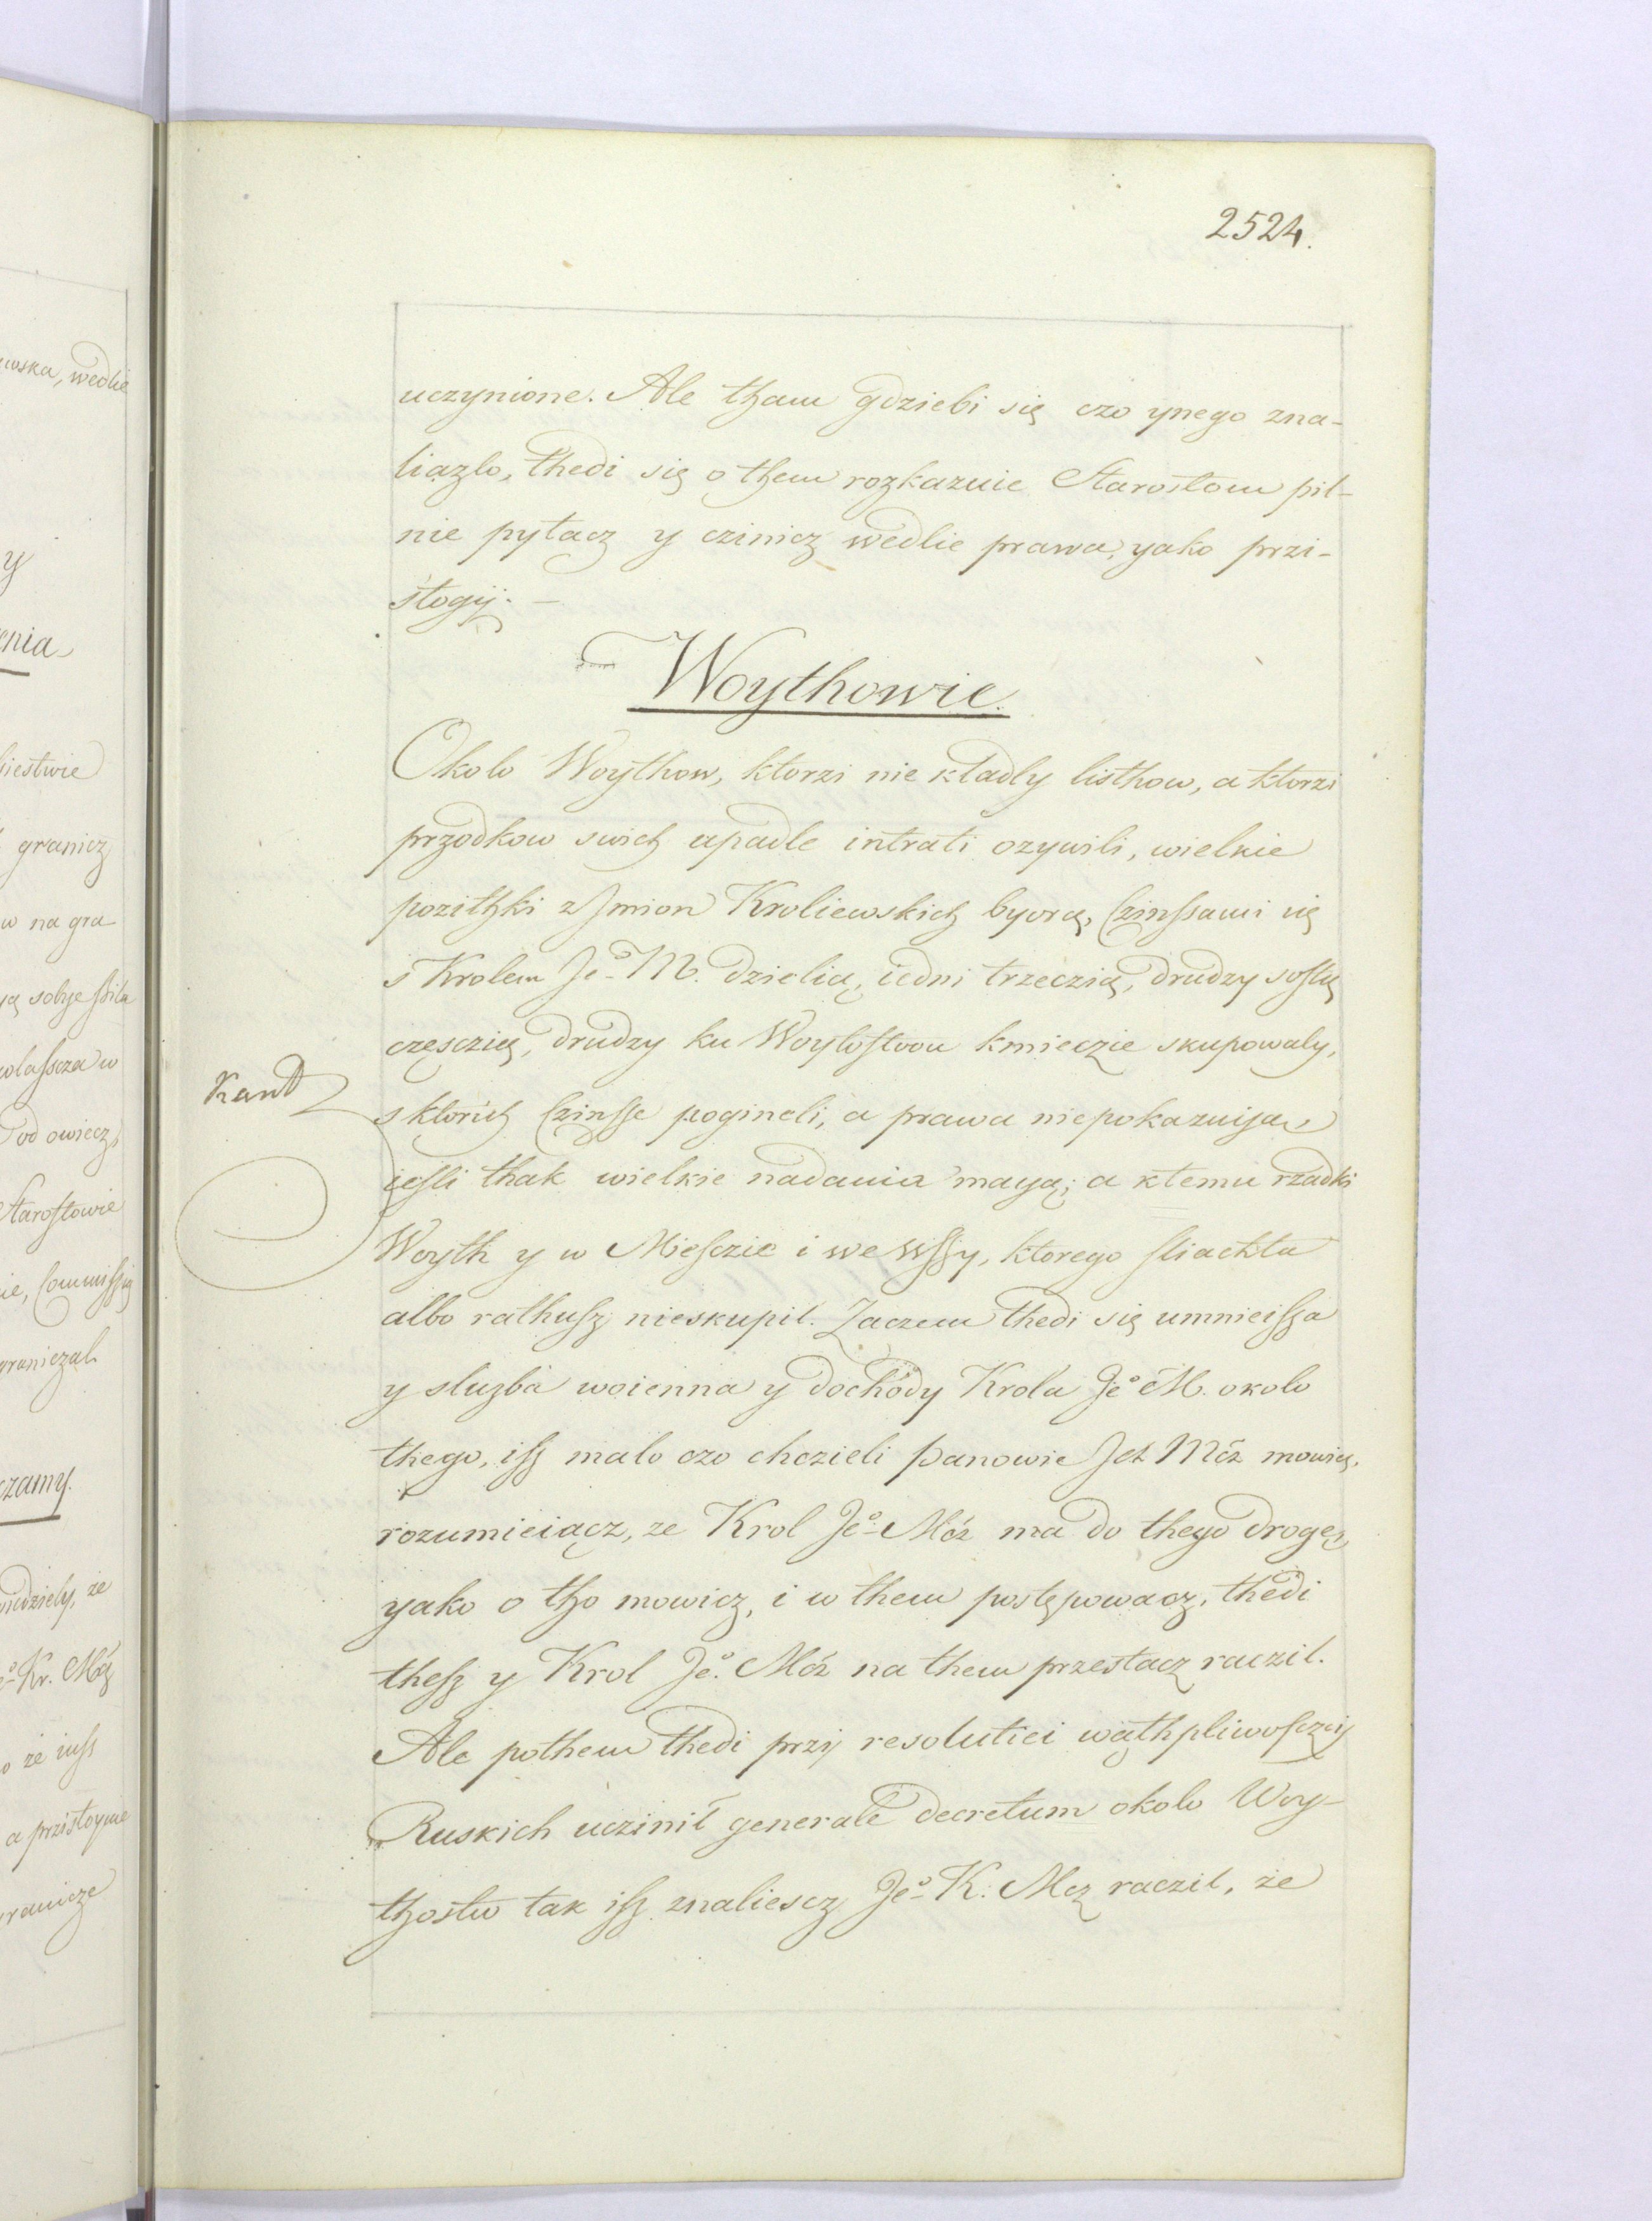 2524.
uczynione. Ale tham gdziebi się czo ynego zna-
liazlo, thedi się o them rozkazuie Starostom pil-
nie pytacz y czinicz wedlie prawa, yako przi-
stogij. —
Woythowie.
Okolo Woythow, ktorzi nie kladly listhow, a ktorzi
przodkow swich upadle intrati ozywili, wielkie
pozithki z Jmion Kroliewskich byorą, Czinssami się
s Krolem Jeo M. dzielią, iedni trzeczią, drudzy sostą
częsczią, drudzy ku Woytostwu kmieczie skupowaly,
s ktorich Czinsse pogineli, a prawa niepokazuiya,
iessli thak wielkie nadania mayą; a ktemu rzadki
Woyth y w Miesczie i we wssy, ktorego sliachta
albo rathusz nieskupil. Zaczem thedi się umnieissa
y sluzba woienna y dochody Krola Jeo M. okolo
thego, isz malo czo chczieli panowie Jch Mcz mowicz,
rozumieiącz, ze Krol Jeo Mcz ma do thego drogę,
yako o tho mowicz, i w them postępowacz, thedi
thesz y Krol Jeo Mcz na them przestacz raczil.
Ale pothem thedi przy resolutiei wąthpliwosczij
Ruskich uczinił generale decretum okolo Woy-
thostw tak isz znaliescz Jeo K. Mcz raczil, że